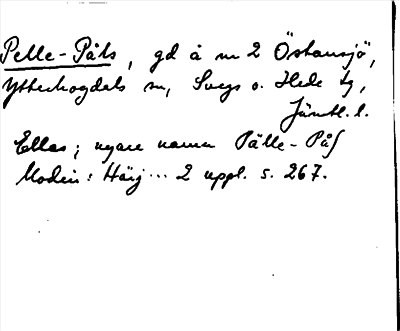 Pelle-Påls, gd å nr 2 Östansjö,
Ytterhogdals sn, Svegs o. Hede tg,
Jämtl. l.
Ellas; nyare namn Pälle-Påls
Modin: Härj... 2 uppl. s. 267.